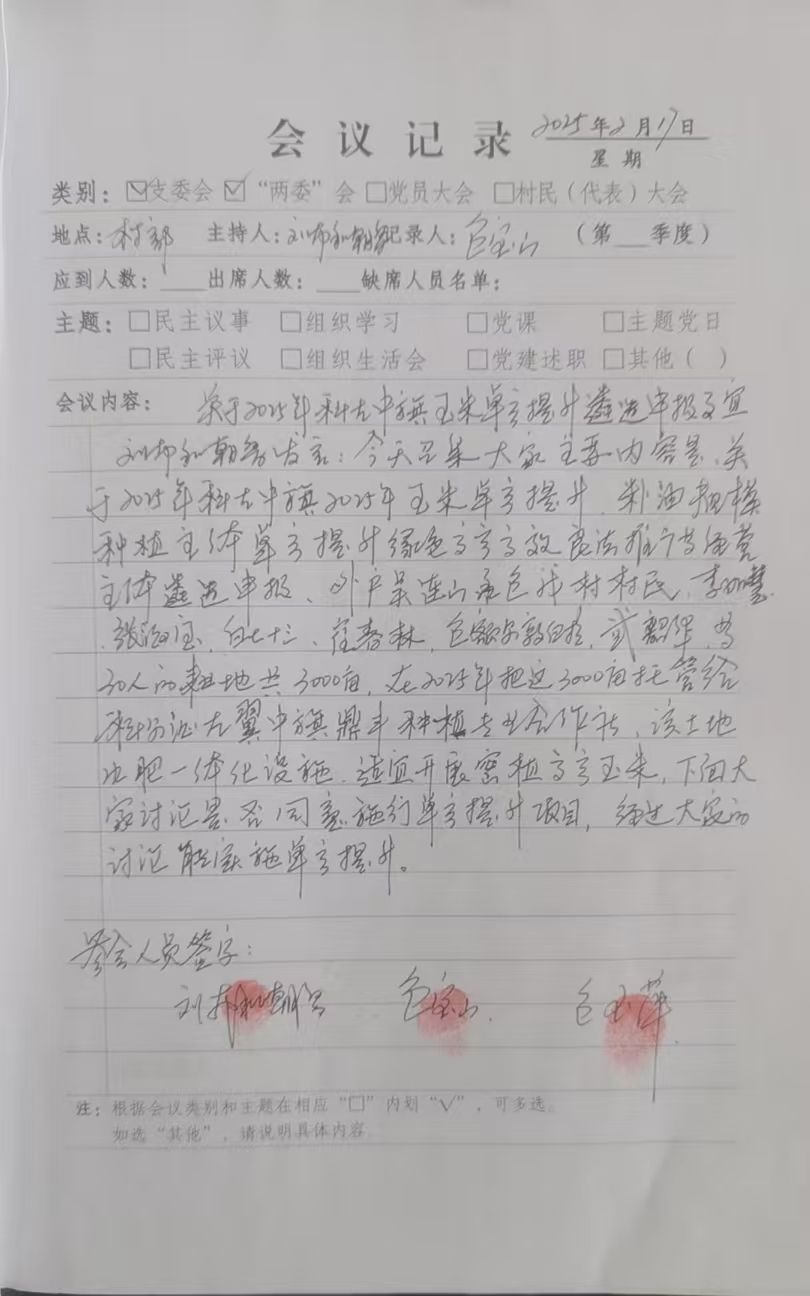 会议记录 2025年2月17日
星期
类别：☑支委会 ☑“两委”会 □党员大会 □村民（代表）大会
地点：村部 主持人：刘布和朝鲁 记录人：包宝山 （第___季度）
应到人数：____出席人数：____缺席人员名单：
主题：□民主议事 □组织学习 □党课 □主题党日
□民主评议 □组织生活会 □党建述职 □其他（ ）
会议内容： 关于2025年科左中旗玉米单产提升遴选申报事宜
刘布和朝鲁发言：今天召集大家主要内容是、关
于2025年科左中旗2025年玉米单产提升、粮油规模
种植主体单产提升绿色高产高效良法推广等经营
主体遴选申报、外户吴连山承包我村村民、李
、张海宝、白七十三、崔春林、包额尔敦白乙、武、等
30人的耕地共3000亩，在2025年把这3000亩托管给
科尔沁左翼中旗鼎丰种植专业合作社，该土地
水肥一体化设施、适宜开展密植高产玉米，下面大
家讨论是否同意施行单产提升项目，经过大家的
讨论能实施单产提升。
参会人员签字：
刘布和朝鲁 包宝山 包玉萍
注：根据会议类别和主题在相应“□”内划“√”，可多选。
如选“其他”，请说明具体内容